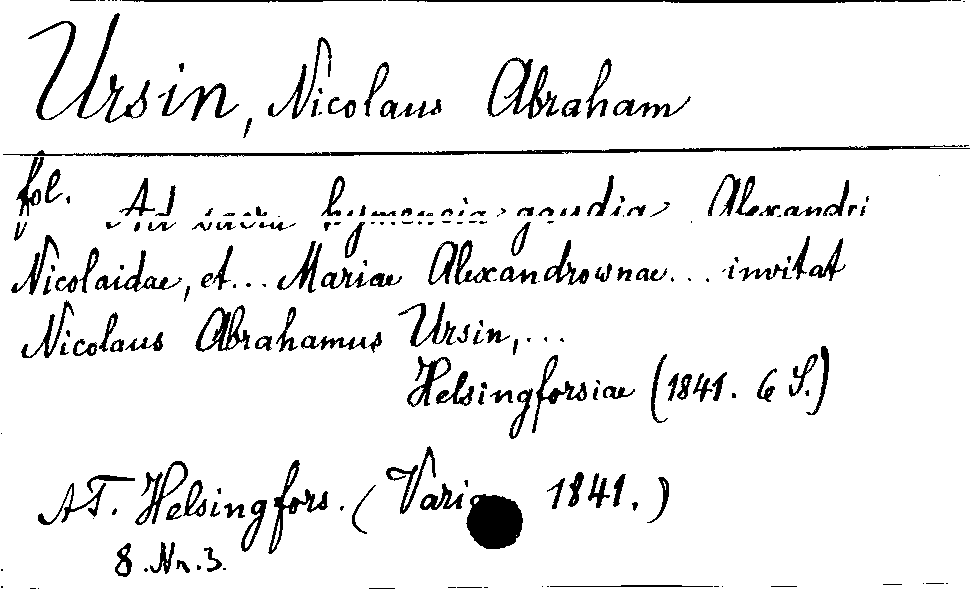 Ursin, Nicolaus Abraham
fol. Ad sacra hymeneia gaudia Alexandri
Nicolaidae, et... Mariae Alexandrownae... invitat
Nicolaus Abrahamus Ursin,...
Helsingforsiae (1841. 6 S.)
AT. Helsingfors. (Varia 1841.)
8. Nr. 3.